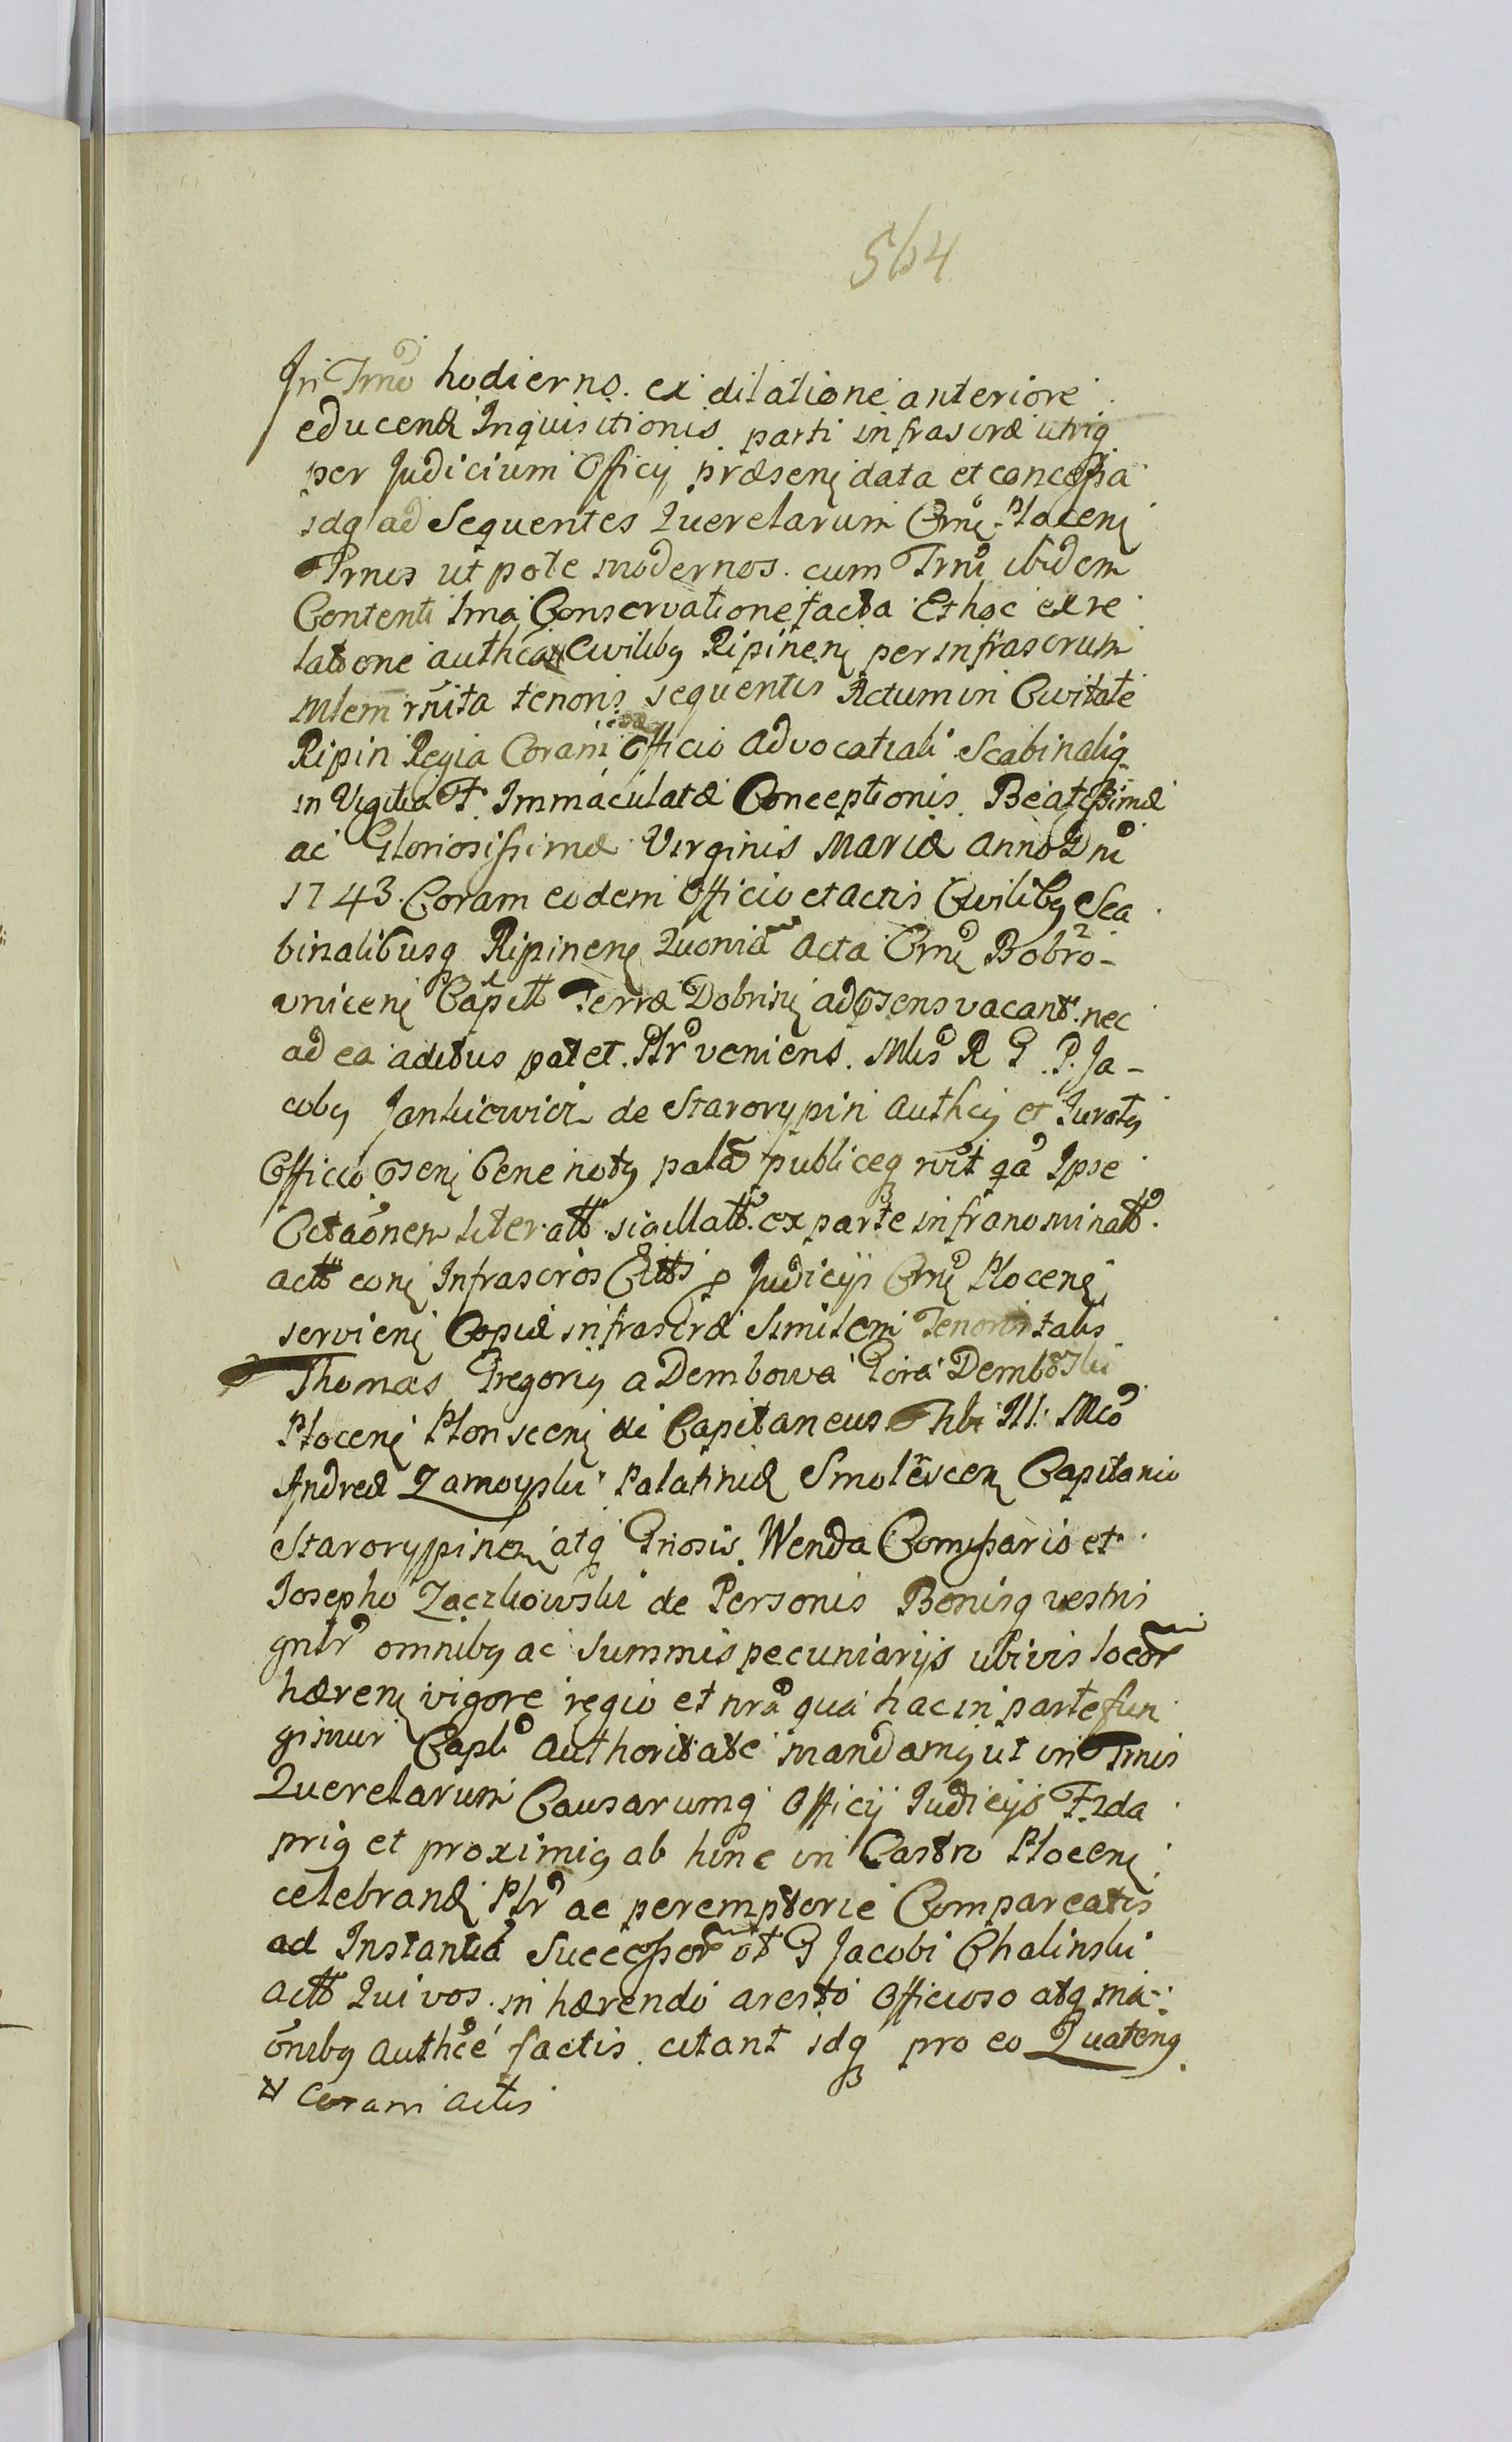 564
In Trno hodierno ex dilatione anteriore
educenđ Inquisitionis parti infrascræ utriq
per Judicium Officij præsenę data et concessa
idq ad Sequentes Querelarum Crnę Plocenę
Trnis ut pote modernos cum Trni ibidem
Contenti Conservatione facta Et hoc ex re
latione authca # Civilibȝ Ripinenę per infrascrum
Mlem rnita tenoris sequentis Actum in Civitate
Ripin Regia Coram Officio Advocatiali Scabinaliq
in Vigilia F. Immaculatæ Conceptionis Beatissimæ
ac Gloriosissimæ Virginis Mariæ Anno Dni
1743. Coram eodem Officio et actis Civilibȝ Sca
binalibusq Ripinenę Quoniã Acta Crnę Bobro-
vnicenę Capit Terræ Dobrinę ad psens vacant nec
ad ea aditus patet. Plr veniens. Mlis R G P. Ja-
cobȝ Jankiewicz de Starorypin Authcȝ et Juratȝ
Officio psenę bene notȝ palã publiceq rvit qa Ipse
Citaonem liter. att. sigillatt. ex parte infranominatt.
actt conę Infrascros Citts p Judicijs Crnę Plocenę
servienę Copiæ infrascræ Similem Tenoris talis
Thomas Gregoriȝ a Dembowa Gora Dembowski
Plocenę Plonscenę &i Capitaneus Tibi Ill. Mco
Andreæ Zamoyski Palatinid Smolenscenę Capitanio
Starorypinenę atq Gnosis Wenda Commissario et
Josepho Zaczkowski de Personis Bonisq vestris
gnlr omnibȝ ac Summis pecuniarijs ubivis locor
hærenę vigore regio et nra qua hac in parte fun
gimur Capli Authoritate mandamȝ ut in Trnis
Querelarum Causarumq Officij Judicijs Frda
prię et proximię ab hinc in Castro Plocenę
celebranđ Plr ac peremptorie Compareatis
ad Instantiã Successor ot G Jacobi Chalinski
actt Qui vos in hærendo aresto Officioso atq ma-
onibȝ Authce factis citant idq pro eo Quatenȝ
# Coram actis